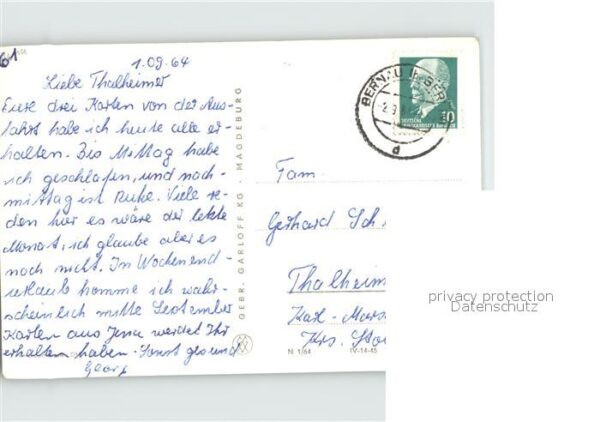 61
1.09.64
Liebe Thalheimer
Eure drei Karten von der Aus-
fahrt habe ich heute alle er-
halten. Bis Mittag habe
ich geschlafen, und nach-
mittag ist Ruhe. Viele re-
den hier es wäre der letzte
Monat, ich glaube aber es
noch nicht. In Wochenend-
urlaub komme ich wahr-
scheinlich mitte September
Karten aus Jena werdet Ihr
erhalten haben. Sonst gesund
Georg
GEBR. GARLOFF KG · MAGDEBURG
N 1/64 IV-14-45
BERNAU
d
10
DEUTSCHE
Fam.
Gerhard Sch
Thalheim
Karl-Marx
Krs. Sto
privacy protection
Datenschutz